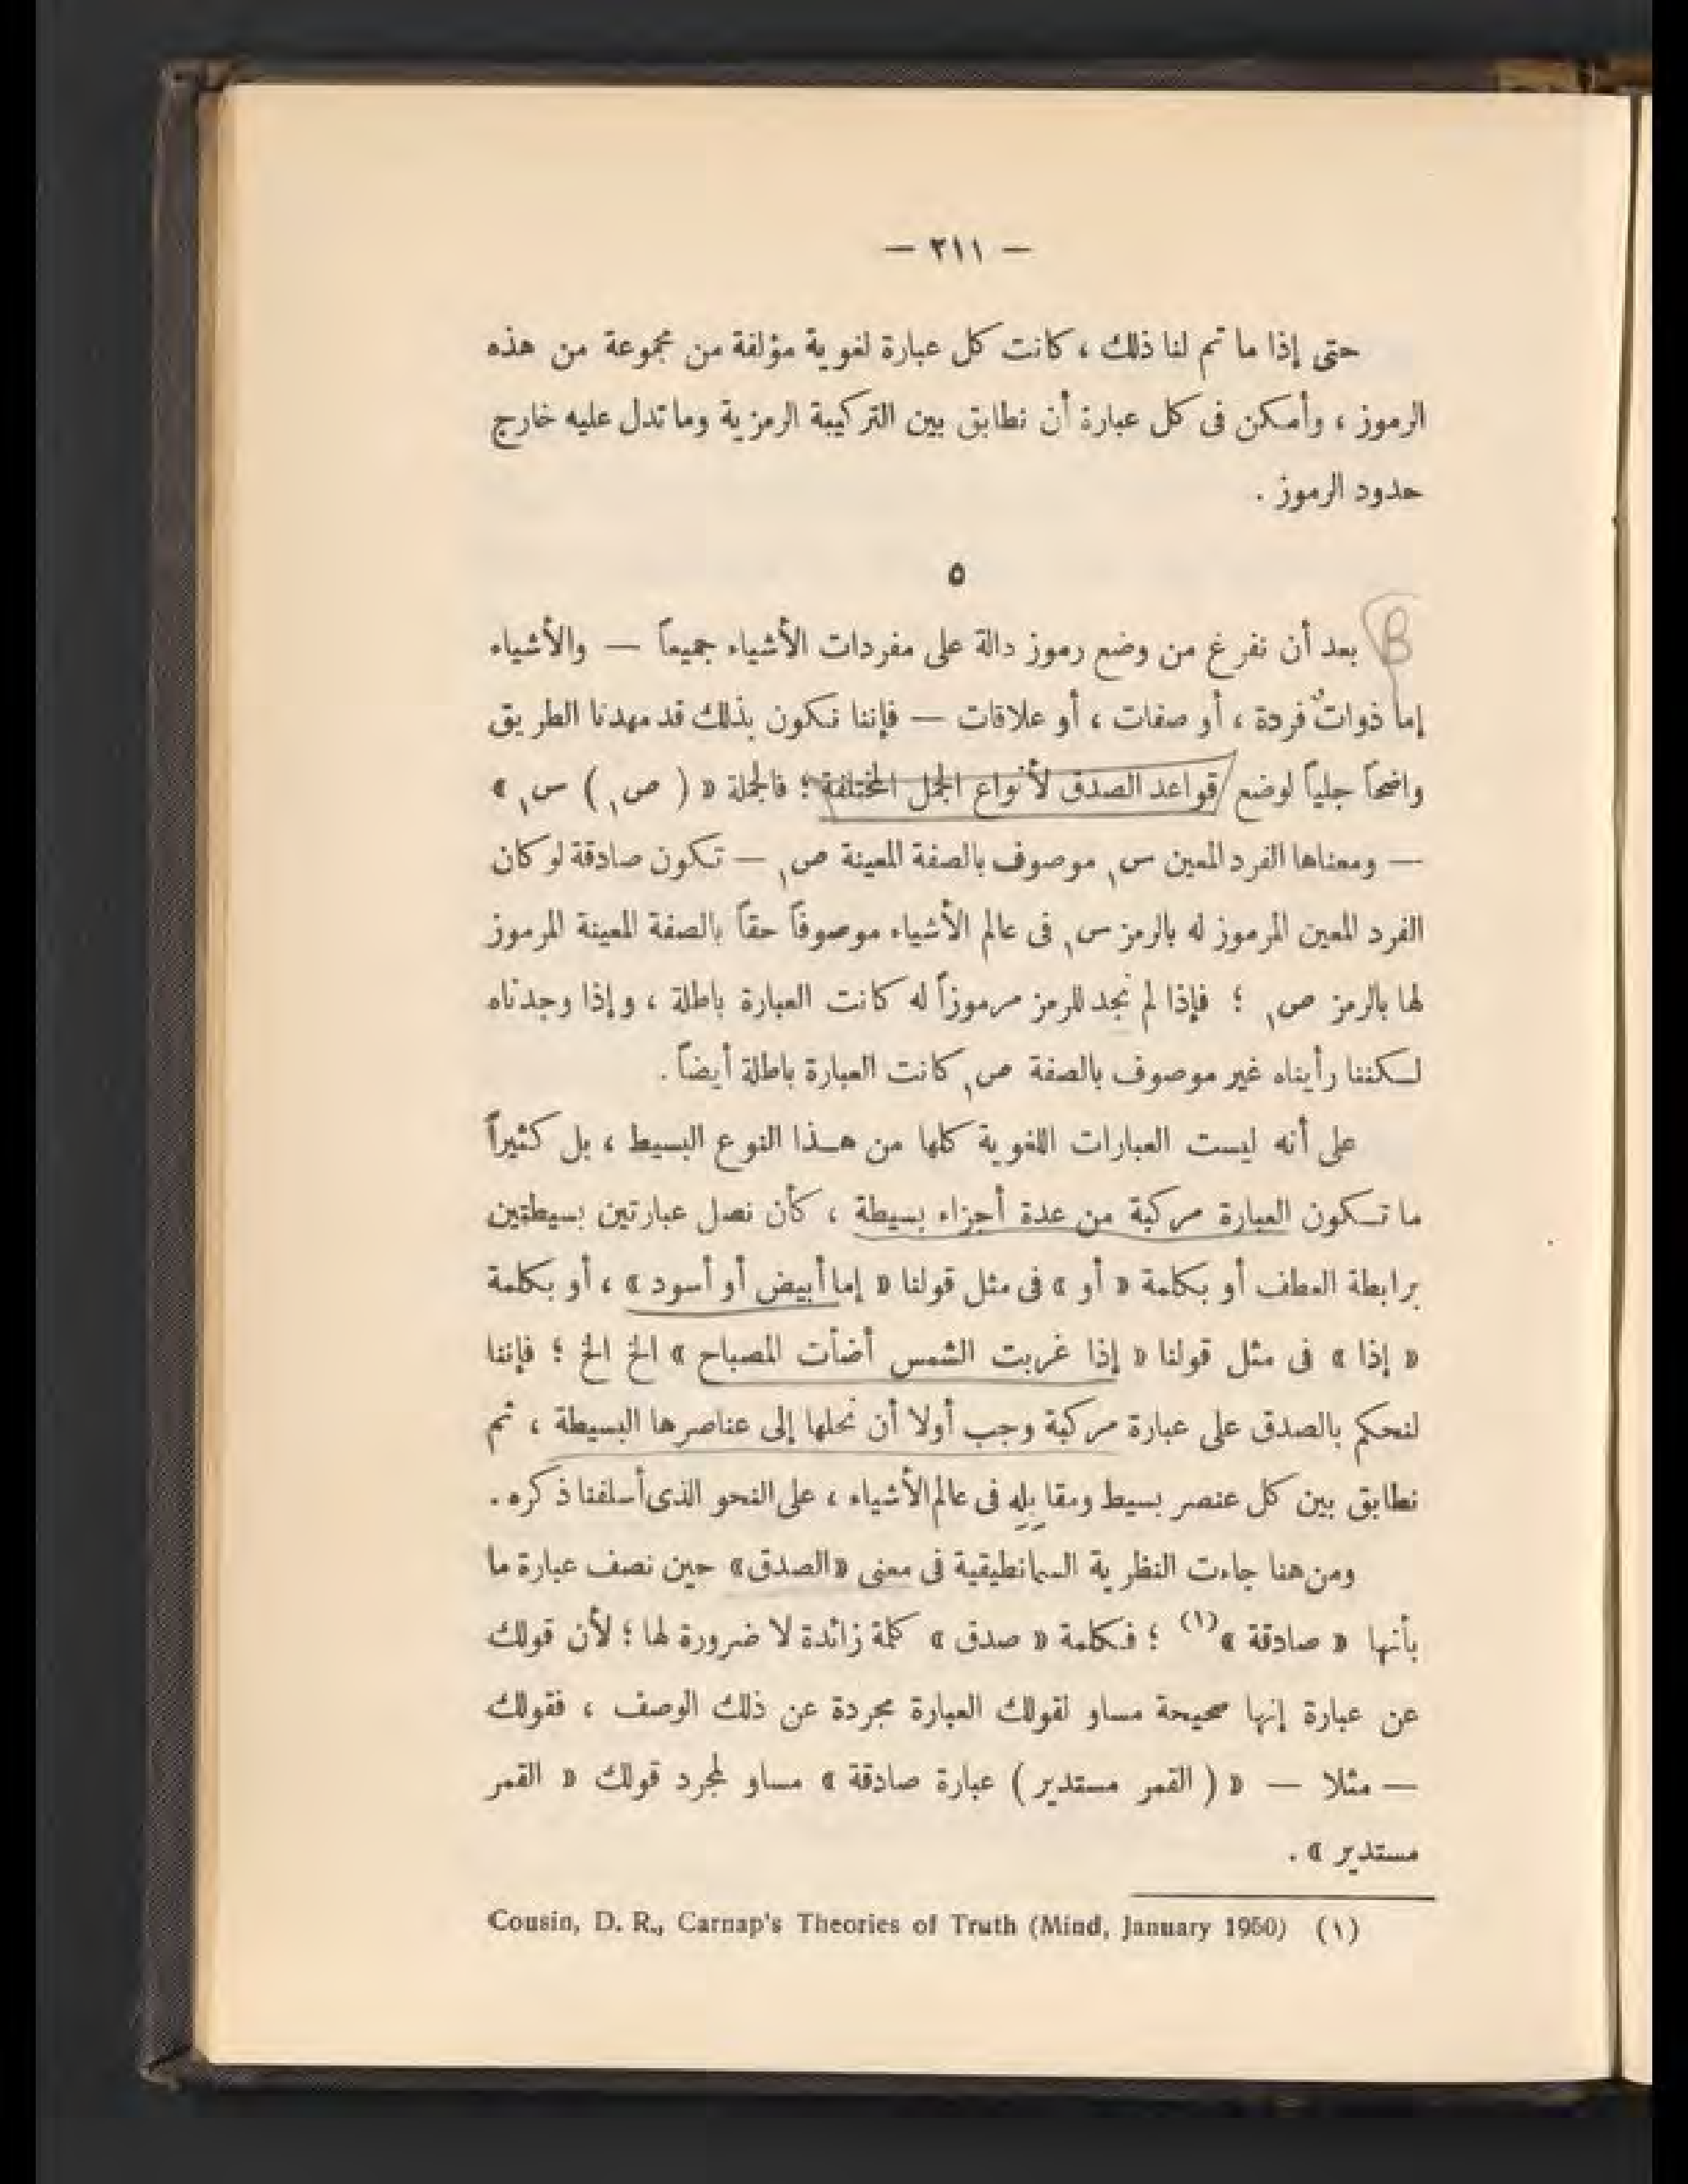 — ٢١١ —
حتى إذا ما تم لنا ذلك ، كانت كل عبارة لغوية مؤلفة من مجموعة من هذه
الرموز ، وأمكن فى كل عبارة أن نطابق بين التركيبة الرمزية وما تدل عليه خارج
حدود الرموز .
٥
B
بعد أن نفرغ من وضع رموز دالة على مفردات الأشياء جميعاً — والأشياء
إما ذواتٌ فردة ، أو صفات ، أو علاقات — فإننا نكون بذلك قد مهدنا الطريق
واضحاً جلياً لوضع قواعد الصدق لأنواع الجمل المختلفة ؛ فالجملة « ( ص١ ) س١ »
— ومعناها الفرد المعين س١ موصوف بالصفة المعينة ص١ — تكون صادقة لو كان
الفرد المعين المرموز له بالرمز س١ فى عالم الأشياء موصوفاً حقاً بالصفة المعينة المرموز
لها بالرمز ص١ ؛ فإذا لم نجد للرمز مرموزاً له كانت العبارة باطلة ، وإذا وجدناه
لكننا رأيناه غير موصوف بالصفة ص١ كانت العبارة باطلة أيضاً .
على أنه ليست العبارات اللغوية كلها من هذا النوع البسيط ، بل كثيراً
ما تكون العبارة مركبة من عدة أجزاء بسيطة ، كأن نصل عبارتين بسيطتين
برابطة العطف أو بكلمة « أو » فى مثل قولنا « إما أبيض أو أسود » ، أو بكلمة
« إذا » فى مثل قولنا « إذا غربت الشمس أضأت المصباح » الخ الخ ؛ فإننا
لنحكم بالصدق على عبارة مركبة وجب أولا أن نحلها إلى عناصرها البسيطة ، ثم
نطابق بين كل عنصر بسيط ومقابِلِه فى عالم الأشياء ، على النحو الذى أسلفنا ذكره .
ومن هنا جاءت النظرية السمانطيقية فى معنى « الصدق » حين نصف عبارة ما
بأنها « صادقة »(١) ؛ فكلمة « صدق » كلمة زائدة لا ضرورة لها ؛ لأن قولك
عن عبارة إنها صحيحة مساو لقولك العبارة مجردة عن ذلك الوصف ، فقولك
— مثلا — « ( القمر مستدير ) عبارة صادقة » مساو لمجرد قولك « القمر
مستدير » .
Cousin, D. R., Carnap's Theories of Truth (Mind, January 1950) (١)